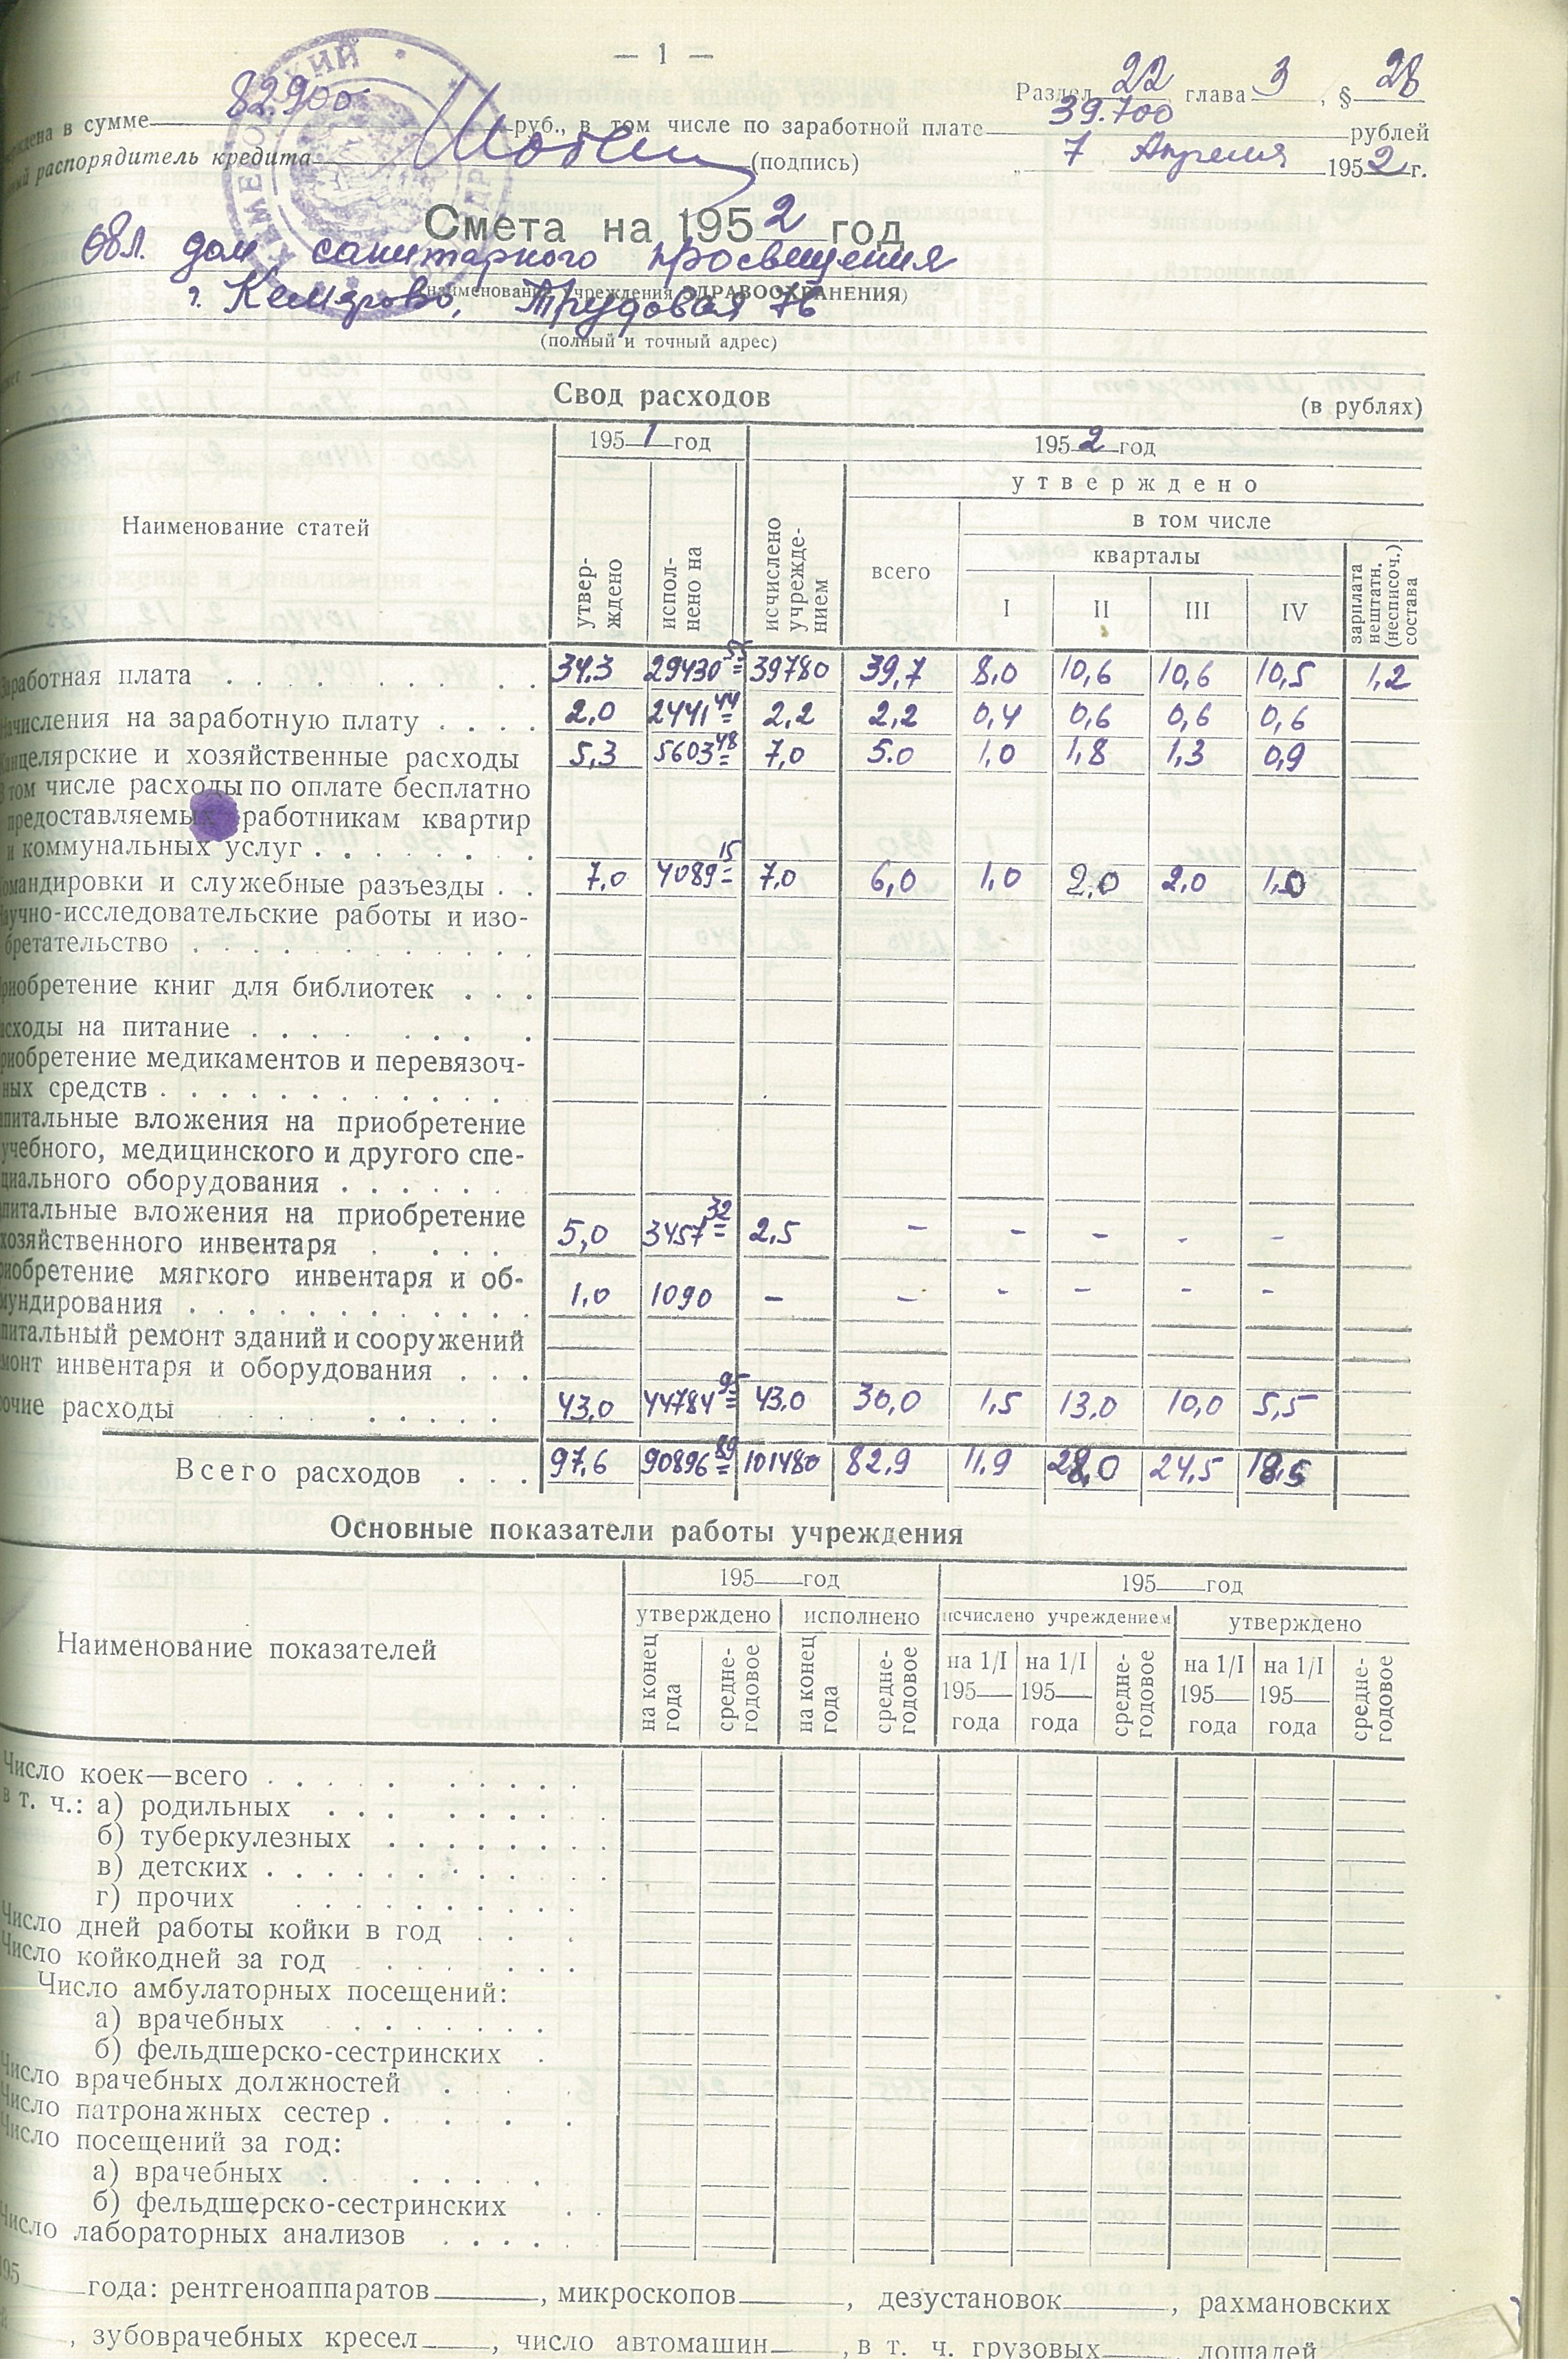 — 1 —
Раздел 22 глава 3, § 28
82.900 39.700
в сумме руб., в том числе по заработной плате рублей
распорядитель кредита (подпись) „ 7 Апреля 1952 г.
Смета на 1952 год
Обл. дом санитарного просвещения
(наименование учреждения ЗДРАВООХРАНЕНИЯ)
г. Кемерово, Трудовая 76
(полный и точный адрес)
Свод расходов
(в рублях)
Наименование статей
1951 год 1952 год
утверждено
в том числе
кварталы
утвер-ждено испол-нено на исчислено учрежде-нием всего I II III IV зарплата нештатн. (несписоч.) состава
Заработная плата 34,3 29430 55 39780 39,7 8,0 10,6 10,6 10,5 1,2
Начисления на заработную плату 2,0 2441 44 2,2 2,2 0,4 0,6 0,6 0,6
Канцелярские и хозяйственные расходы 5,3 5603 48 7,0 5.0 1,0 1,8 1,3 0,9
В том числе расходы по оплате бесплатно
предоставляемых работникам квартир
и коммунальных услуг
Командировки и служебные разъезды 7,0 4089 15 7,0 6,0 1,0 2,0 2,0 1,0
Научно-исследовательские работы и изо-
бретательство
Приобретение книг для библиотек
Расходы на питание
Приобретение медикаментов и перевязоч-
ных средств
Капитальные вложения на приобретение
учебного, медицинского и другого спе-
циального оборудования
Капитальные вложения на приобретение
хозяйственного инвентаря 5,0 3457 32 2,5 - - - - -
Приобретение мягкого инвентаря и об-
мундирования 1,0 1090 - - - - - -
Капитальный ремонт зданий и сооружений
Ремонт инвентаря и оборудования
Прочие расходы 43,0 44784 95 43,0 30,0 1,5 13,0 10,0 5,5
Всего расходов 97,6 90896 89 101480 82,9 11,9 28,0 24,5 18,5
Основные показатели работы учреждения
Наименование показателей
195 год 195 год
утверждено исполнено исчислено учреждением утверждено
на конец года средне-годовое на конец года средне-годовое на 1/I 195 года на 1/I 195 года средне-годовое на 1/I 195 года на 1/I 195 года средне-годовое
Число коек—всего
в т. ч.: а) родильных
б) туберкулезных
в) детских
г) прочих
Число дней работы койки в год
Число койкодней за год
Число амбулаторных посещений:
а) врачебных
б) фельдшерско-сестринских
Число врачебных должностей
Число патронажных сестер
Число посещений за год:
а) врачебных
б) фельдшерско-сестринских
Число лабораторных анализов
195 года: рентгеноаппаратов, микроскопов, дезустановок, рахмановских
, зубоврачебных кресел, число автомашин, в т. ч. грузовых, лошадей